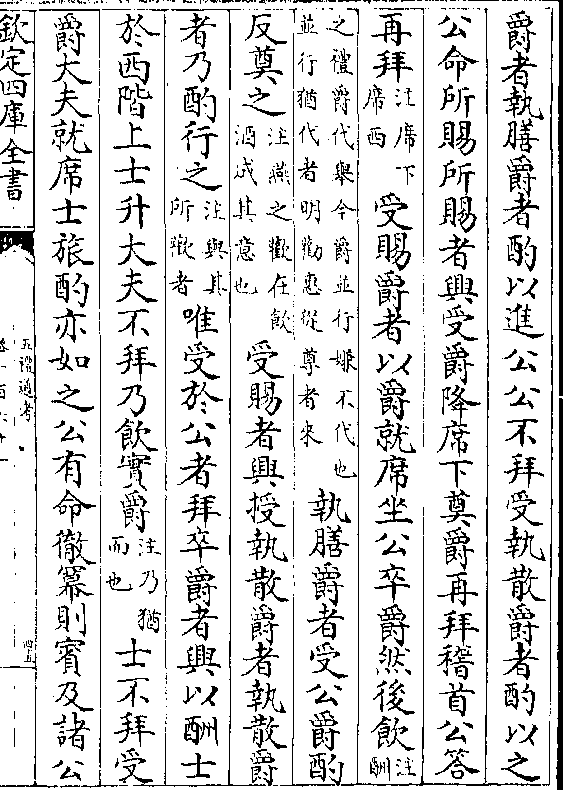 爵者執膳爵者酌以進公公不拜受執散爵者酌以之
公命所賜所賜者興受爵降席下奠爵再拜稽首公答
再拜注席下席西受賜爵者以爵就席坐公卒爵然後飲注酬
之禮爵代舉今爵並行嫌不代也並行猶代者明勸惠從尊者來執膳爵者受公爵酌
反奠之注燕之歡在飲酒成其意也受賜者興授執散爵者執散爵
者乃酌行之注與其所歡者唯受於公者拜卒爵者興以酬士
於西階上士升大夫不拜乃飲實爵注乃猶而也士不拜受
爵大夫就席士旅酌亦如之公有命徹冪則賓及諸公
欽定四庫全書
五禮通考